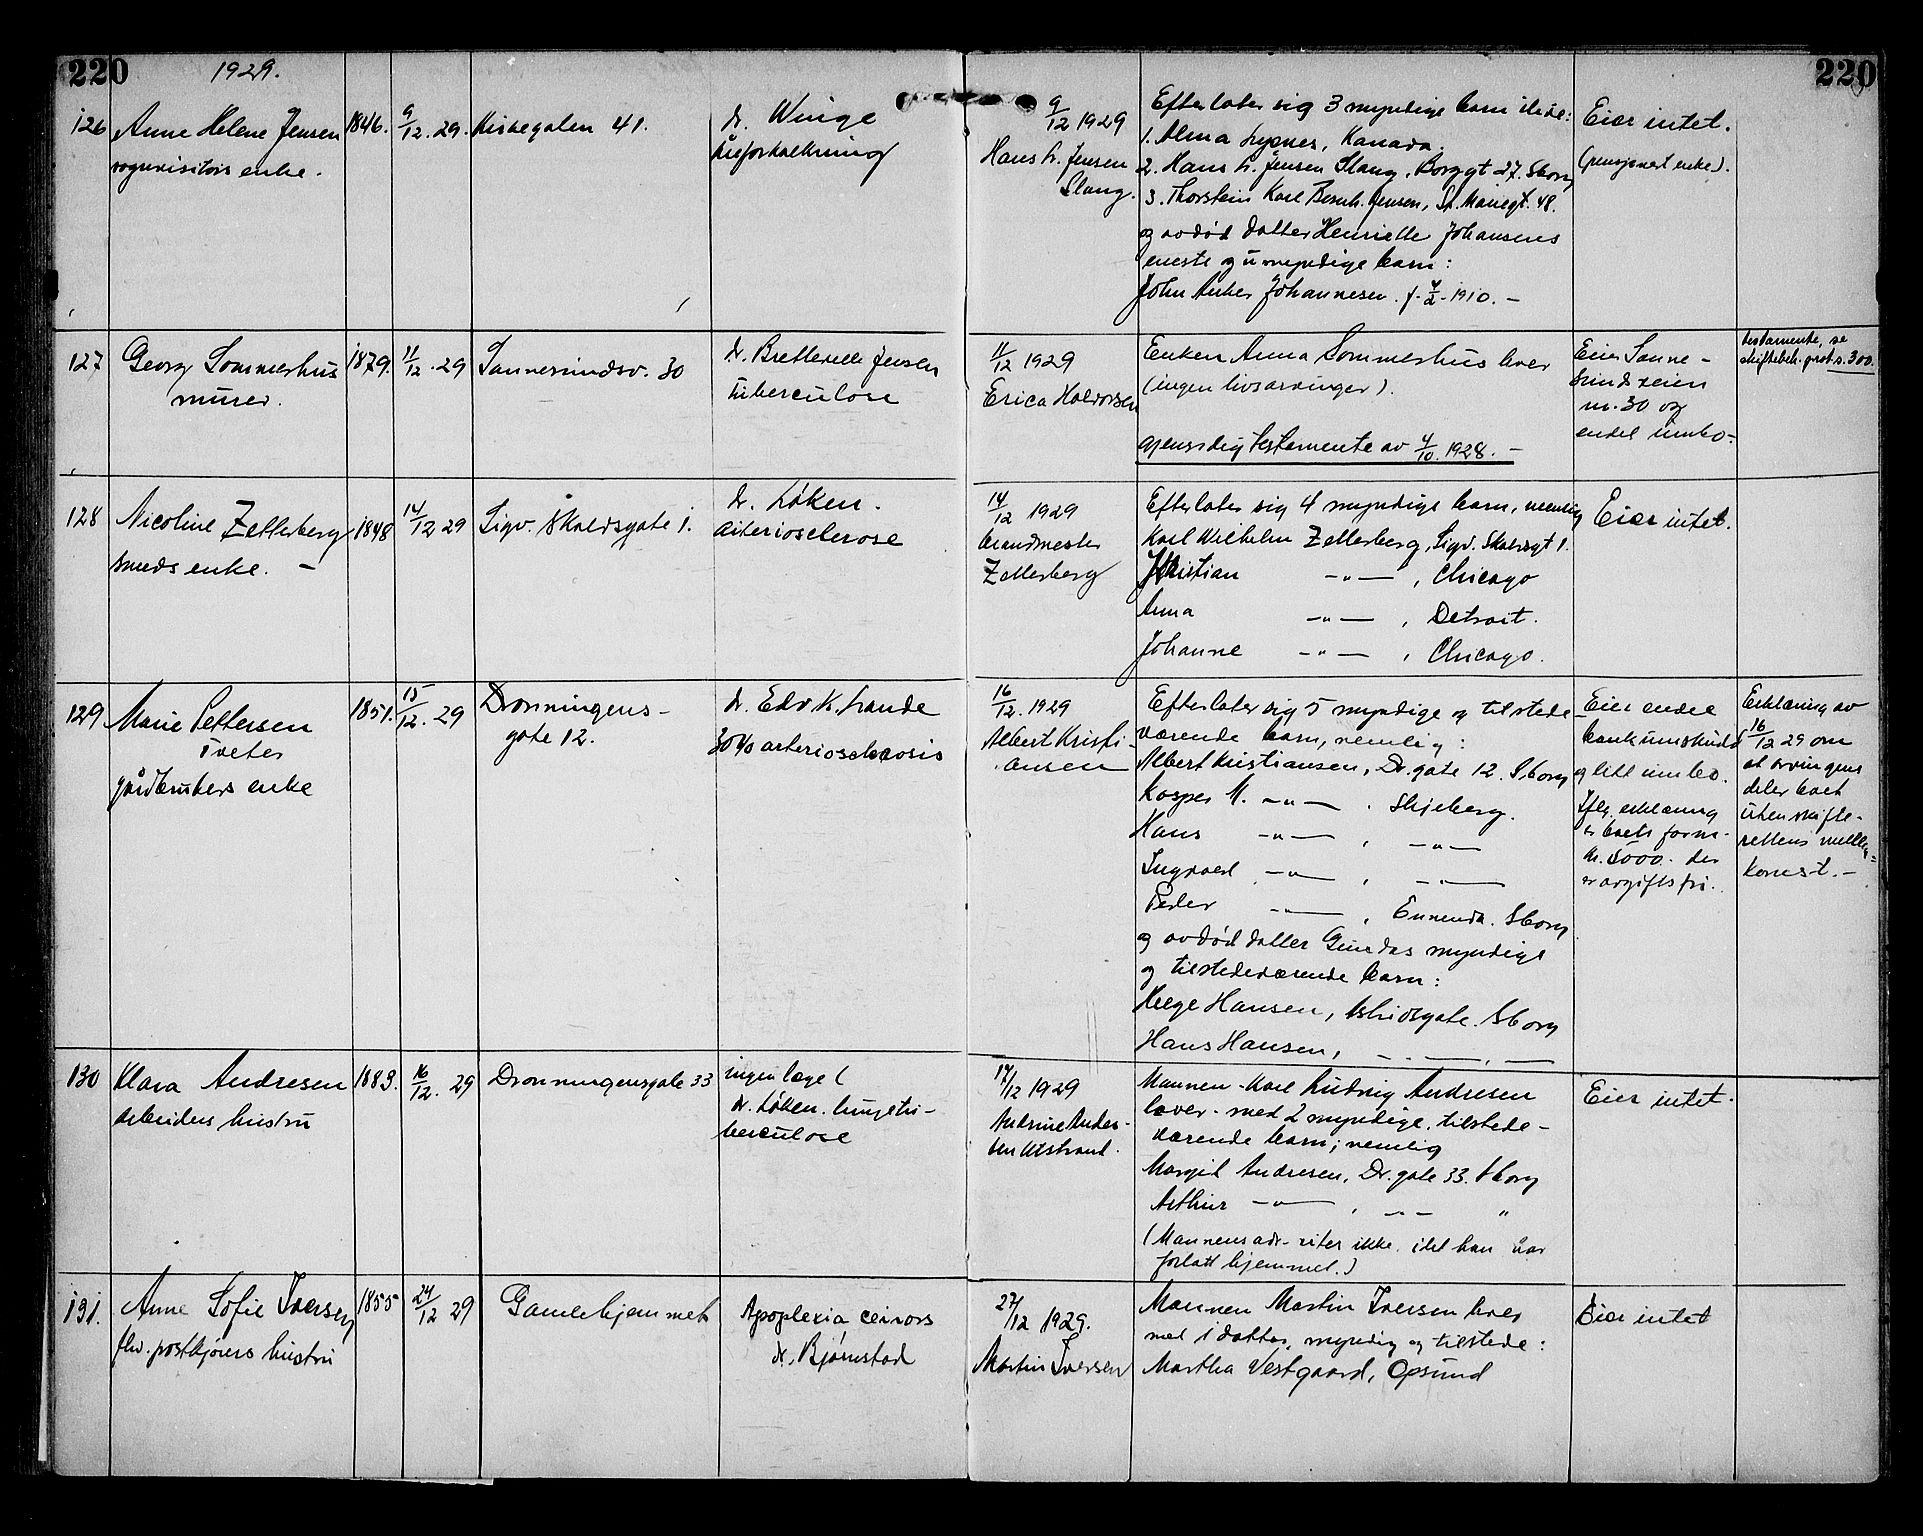 220 1929. 220
126 Anne Helene Jensen 1846. 9/12. 29. Kirkegaten 41. dr. Winge 9/12 1929 Efterlater sig 3 myndige barn Eier intet.
vognvisitørs enke. åreforkalkning Hans Jensen 1. Alma Kanada. (pensjonert enke).
Slang. 2. Hans Jensen Slang, Borggt 27. Sborg
3. Thorstein Karl Bernh. Jensen, St. Mariegt. 48.
og avdød datter Henriette Johansens
eneste og umyndige barn:
John Anker Johannesen. f. 4/2-1910. –
127 Georg Sommerhus 1879. 11/12. 29 Sannesundsv. 30 dr. Bretteville Jensen 11/12 1929 Enken Anna Sommerhus lever Eier Sanne- testamente, se
murer. tuberculose Erica Halvorsen (ingen livsarvinger). sundveien skiftebeh. prot. s. 300.
nr. 30 og
gjensidig testamente av 4/10. 1928. – endel innbo.
128 Nicoline Zetterberg 1848 14/12 29 Sigv. Skaldsgate 1. dr. Løken. 14/12 1929 Efterlater sig 4 myndige barn, nemlig Eier intet.
smeds enke. – arteriosclerose brandmester Karl Wilhelm Zetterberg, Sigv. Skaldsgt 1.
Zetterberg Kristian –"– , Chicago
Anna –"– , Detroit.
Johanne –"– , Chicago.
129 Marie Pettersen 1851. 15/12. 29 Dronningens- dr. Edv. K. Lande 16/12. 1929 Efterlater sig 5 myndige og tilstede- Eier endel Erklæring av
Tveter gate 12. arteriosclerosis Albert Kristi- værende barn, nemlig: bankinnskudd 16/12 29 om
gårdbrukers enke ansen Albert Kristiansen, Dr. gate 12. Sborg og litt innbo. at arvingene
Kasper M. –"– , Skjeberg. Iflg. erklæring deler boet
Hans –"– , –"– er boets form. uten skifte-
Ingvald –"– , –"– kr. 5000.- der rettens mellem-
Peder –"– , Sborg er avgiftsfri. komst. –
og avdød datter Gundas myndige
og tilstedeværende barn:
Helge Hansen, Astridsgate. Sborg
Hans Hansen, –"– , –
130 Klara Andresen 1883. 16/12. 29 Dronningensgate 33 ingen læge ( 17/12 1929 Mannen - Karl Ludvig Andresen Eier intet.
arbeiders hustru dr. Løken. lungetu- Andrine Ander- lever - med 2 myndige, tilstede-
berculose sen Utstrand. værende barn; nemlig
Margit Andresen, Dr. gate 33. Sborg
Arthur –"– , –"– "
(Mannens adr. vites ikke, idet han har
forlatt hjemmet.)
131. Anne Sofie Iversen 1855 24/12 29 Gamlehjemmet Apoplexia 27/12 1929. Mannen Martin Iversen lever Eier intet
fhv. postkjørers hustru dr. Bjørnstad Martin Iversen med 1 datter, myndig og tilstede:
Martha Vestgaard, Opsund